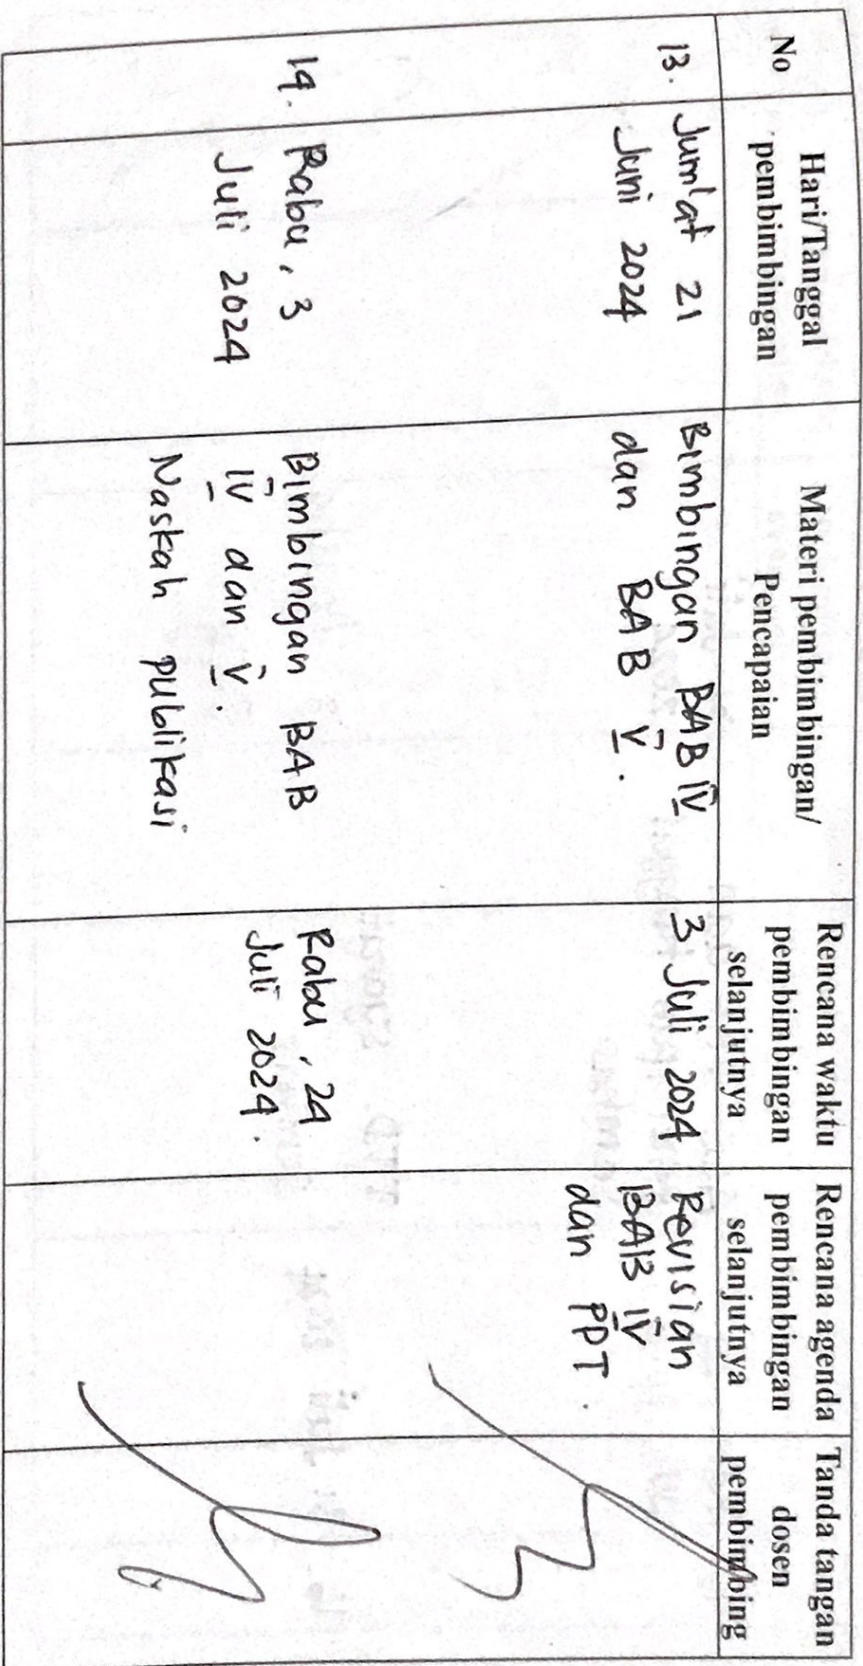 No
Hari/Tanggal
pembimbingan
Materi pembimbingan/
Pencapaian
Rencana waktu
pembimbingan
selanjutnya
Rencana agenda
pembimbingan
selanjutnya
Tanda tangan
dosen
pembimbing
13.
Jumlat 21
Juni 2024
Bimbingan BAB IV
dan BAB V.
3 Juli 2024
Revisian
BAB IV
dan PPT.
14.
Rabu, 3
Juli 2024
Bimbingan BAB
IV dan V.
Naskah publikasi
Rabu, 24
Juli 2024.